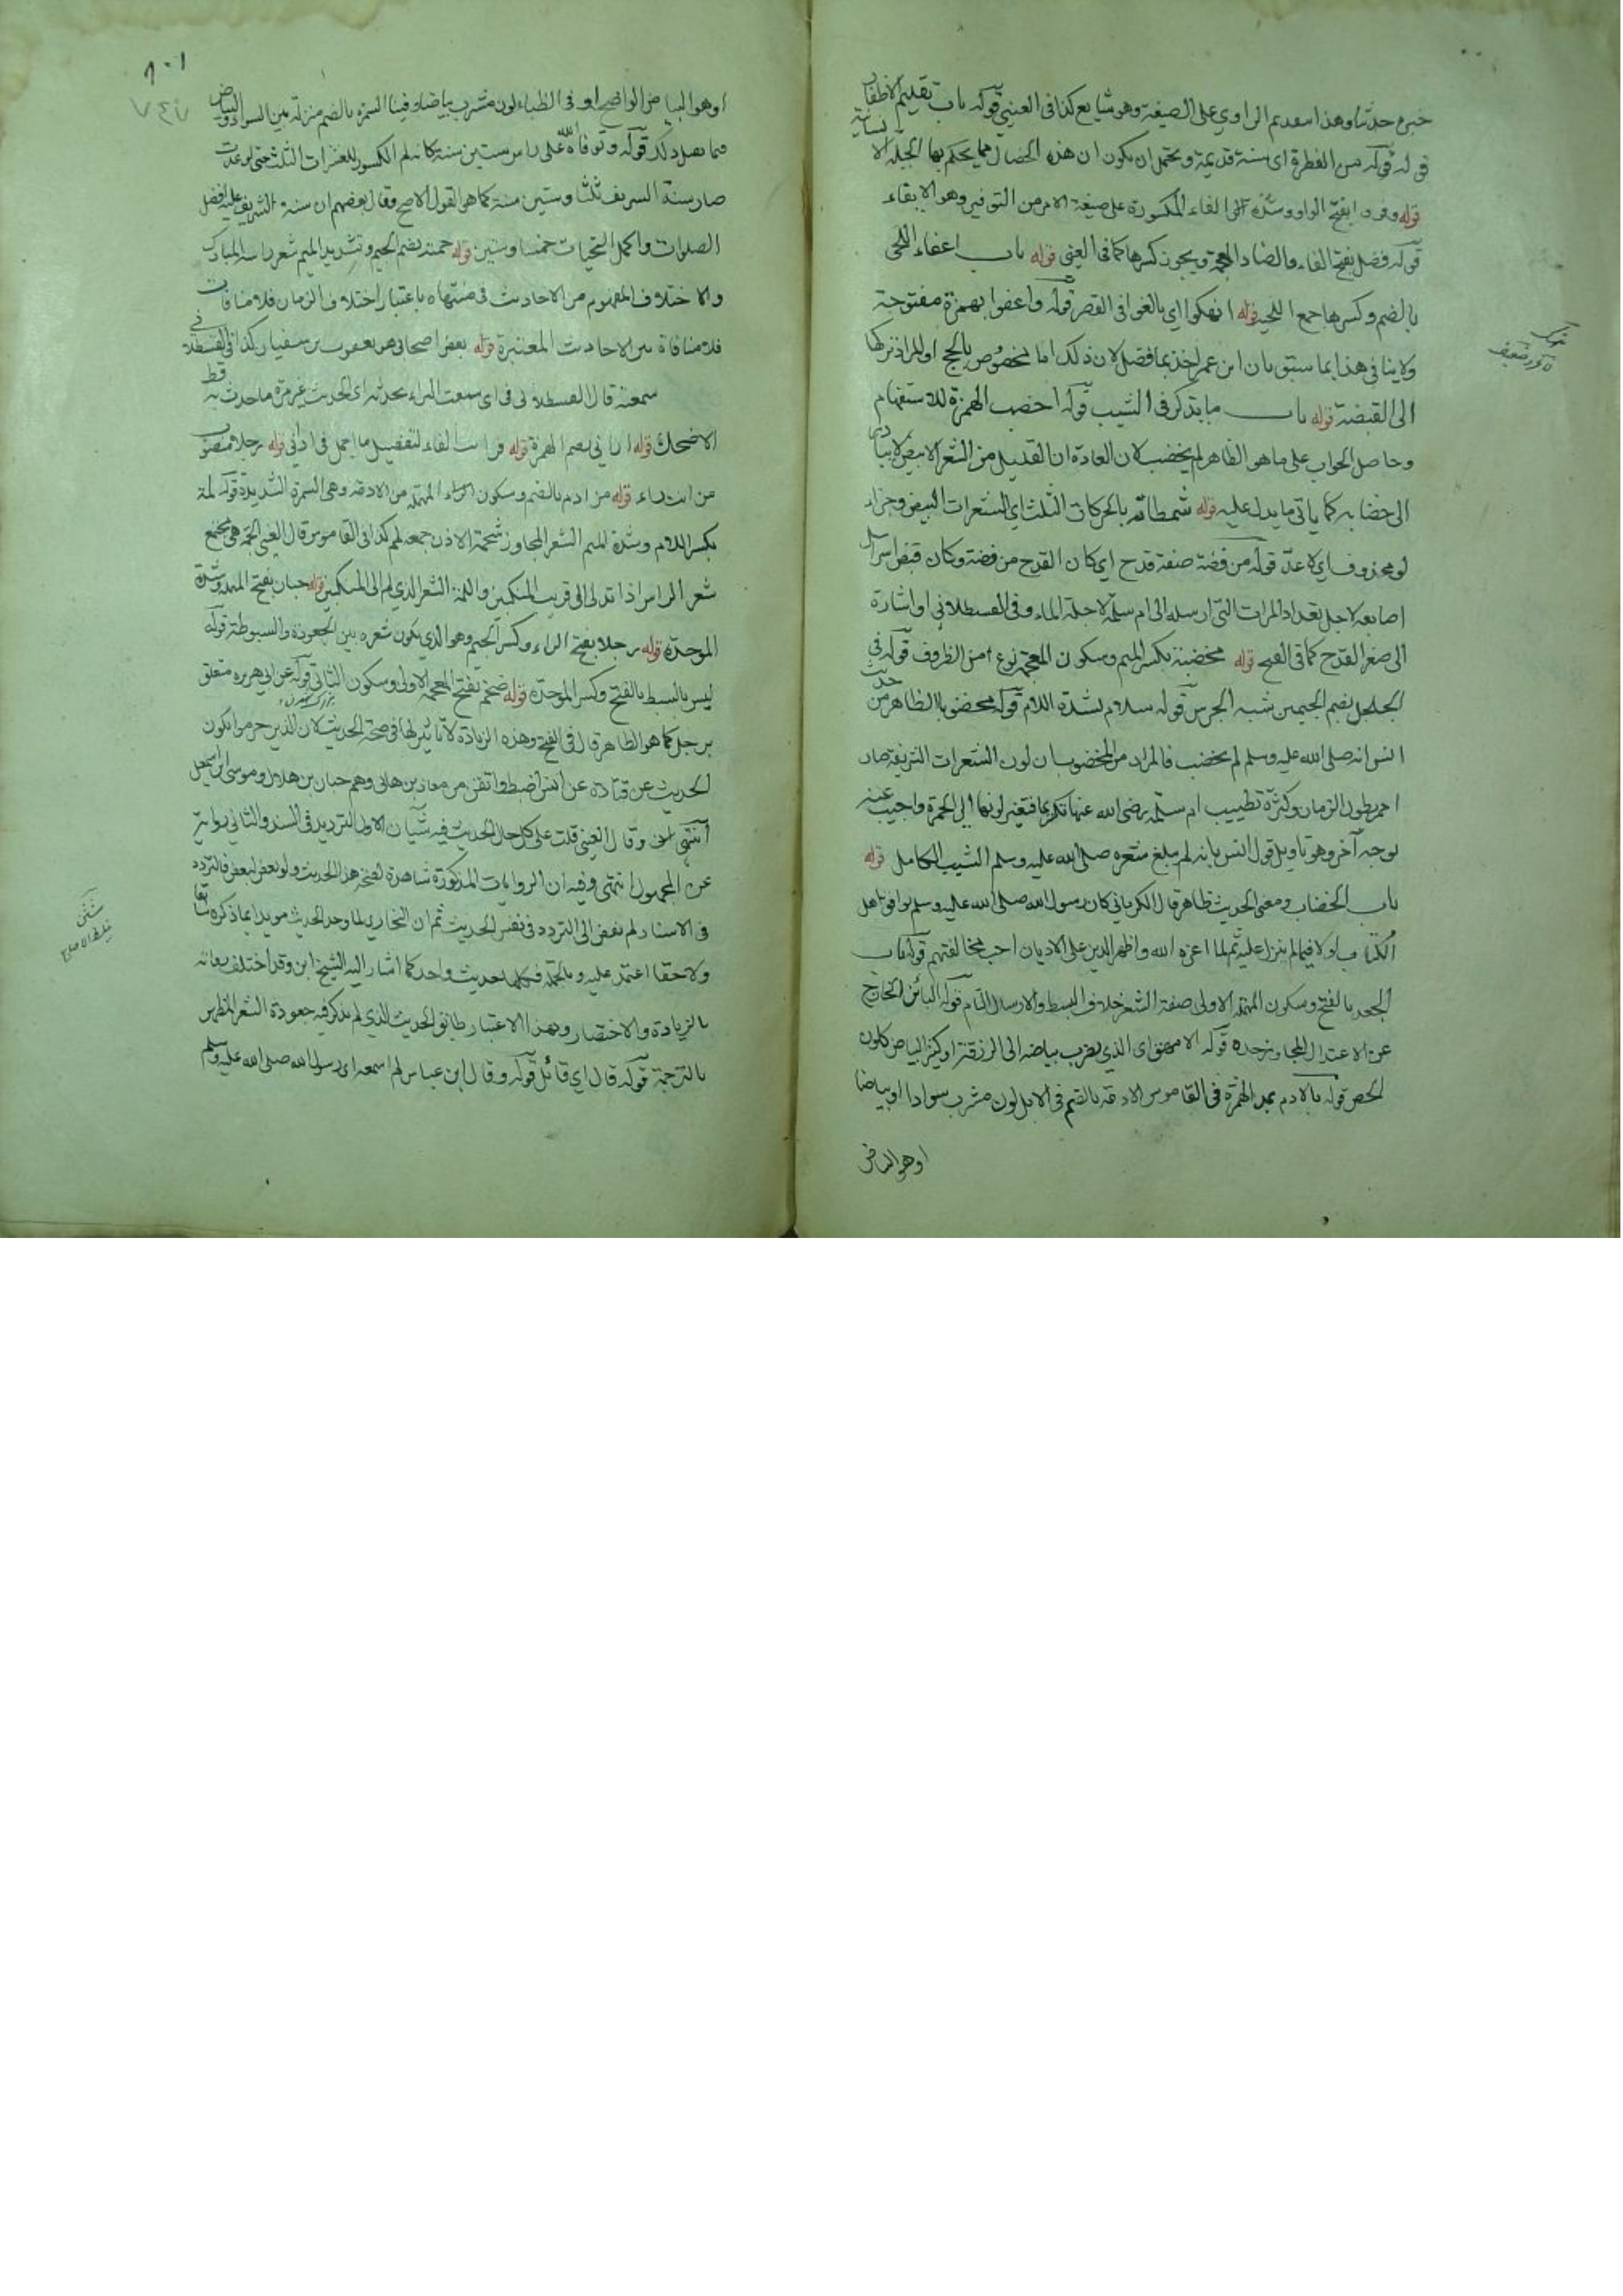 خبره حدثنا وهذا اسعدهم الراوي على الصيغة وهو شايع كذا في العيني قوله باب تقليم الاظفار
قوله من الفطرة اى سنة قديمة ويحتمل ان يكون ان هذه الخصال مما يحكم بها الجبلة الا
قوله وفروا بفتح الواو وشدة الفاء المكسورة على صيغة الامر من التوفير وهو الابقاء
قوله فضل بفتح الفاء والضاد المعجمة ويجوز كسرها كما في العيني قوله باب اعفاء اللحى
بالضم وكسرها جمع اللحية قوله انهكوا اي بالغوا في القص قوله واعفوا بهمزة مفتوحة
ولا ينافي هذا بما سبق بان ابن عمر اخذ بما فضل لان ذلك اما مخصوص بالحج او المراد تركها
الى القبضة قوله باب ما يذكر في الشيب قوله اخضب الهمزة للاستفهام
وحاصل الجواب على ما هو الظاهر لم يخضب لان العادة ان القليل من الشعر الابيض لا
الى خضابه كما ياتي ما يدل عليه قوله شمطاته بالحركات الثلث اي الشعرات البيض وجزاء
لو محذوف اي لاعد قوله من فضة صفة قدح اي كان القدح من فضة وكان قبض اسرائيل
اصابعه لاجل تعداد المرات التي ارسله الى ام سلمة لاجل الماء وفي القسطلاني او اشارة
الى صغر القدح كما في الفتح قوله مخضبة بكسر الميم وسكون المعجمة نوع من الظروف قوله في
الجلجل بضم الجيمين شبه الجرس قوله سلام بشدة اللام قوله مخضوبا الظاهر من
انس انه صلى الله عليه وسلم لم يخضب فالمراد من المخضوب ان لون الشعرات الشريفة صار
احمر بطول الزمان وكثرة تطييب ام سلمة رضي الله عنها تكريما فتغير لونها الى الحمرة واجيب عنه
بوجه آخر وهو تاويل قول انس بانه لم يبلغ شعره صلى الله عليه وسلم الشيب الكامل قوله
باب الخضاب ومعنى الحديث ظاهر قال الكرماني كان رسول الله صلى الله عليه وسلم يوافق اهل
الكتاب اولا فيما لم ينزل عليه ثم لما اعزه الله واظهر الدين على الاديان احب مخالفتهم قوله باب
الجعد بالفتح وسكون المهملة الاولى صفة الشعر خلاف البسط والارسال التام قوله البائن الخارج
عن الاعتدال المجاوز حده قوله الامهق اى الذي يضرب بياضه الى الزرقة او كثير البياض كلون
الجص قوله بالادم بمد الهمزة في القاموس الادمة بالضم في الابل لون مشرب سوادا او بياضا
او هو البياض
او هو البياض الواضح او في الظباء لون مشرب بياضا وفينا السمرة بالضم منزلة بين السواد والبياض
قوله وتوفاه الله على راس ستين سنة كانه لم الكسور للعشرات الثلث حتى لو عدت
صار سنة الشريف ثلثا وستين سنة كما هو القول الاصح وقال بعضهم ان سنه الشريف عليه افضل
الصلوات واكمل التحيات خمسا وستين قوله جمته بضم الجيم وتشديد الميم شعر راسه المبارك
والاختلاف المفهوم من الاحاديث في منتهاه باعتبار اختلاف الزمان فلا منافات
فلا منافاة بين الاحاديث المعتبرة قوله بعض اصحابي هو يعقوب بن سفيان كذا في القسطلاني
سمعته قال القسطلاني اى سمعت البراء يحدثه اى الحديث غير مرة ما حدث به قط
الا ضحك قوله اراني بضم الهمزة قوله الفاء لتفصيل ما اجمل في اراني قوله رجلا
قوله من ادم بالضم وسكون المهملة من الادمة وهي السمرة الشديدة قوله لمة
بكسر اللام وشدة الميم الشعر المجاوز شحمة الاذن جمعه لمم كذا في القاموس قال العيني الجمة هي مجمع
شعر الراس اذا تدلى الى قريب المنكبين واللمة الشعر الذي لم الى المنكبين قوله حبان بفتح المهملة وشدة
الموحدة قوله رجلا بفتح الراء وكسر الجيم وهو الذي يكون شعره بين الجعودة والسبوطة قوله
ليس بالسبط بالفتح وكسر الموحدة قوله ضخم بفتح المعجمة الاولى وسكون الثاني قوله عن ابي هريرة متعلق
برجل كما هو الظاهر قال في الفتح وهذه الزيادة لا تاثير لها في صحة الحديث لان الذين جزموا بكون
الحديث عن قتادة عن انس اضبط واتقن من معاذ بن هاني وهم حبان بن هلال وموسى ابن اسمعيل
انتهى وقال العيني قلت على كل حال الحديث فيه شيان الاول الترديد في السند والثاني روايته
عن المجهول انتهى وفيه ان الروايات المذكورة شاهدة لصحة هذا الحديث ولو بعض لبعض فالتردد
في الاسناد لم يفض الى التردد في نفس الحديث ثم ان البخاري لما وجد الحديث مويدا بما ذكره سابقا
ولاحقا اعتمد عليه وبالجملة فكلها حديث واحد كما اشار اليه الشيخ ابن وقد اختلف رواته
بالزيادة والاختصار وبهذا الاعتبار طابق الحديث الذي لم يذكر فيه جعودة الشعر المظهر
بالترجمة قوله قال اي قائل قوله وقال ابن عباس لم اسمعه اى رسول الله صلى الله عليه وسلم